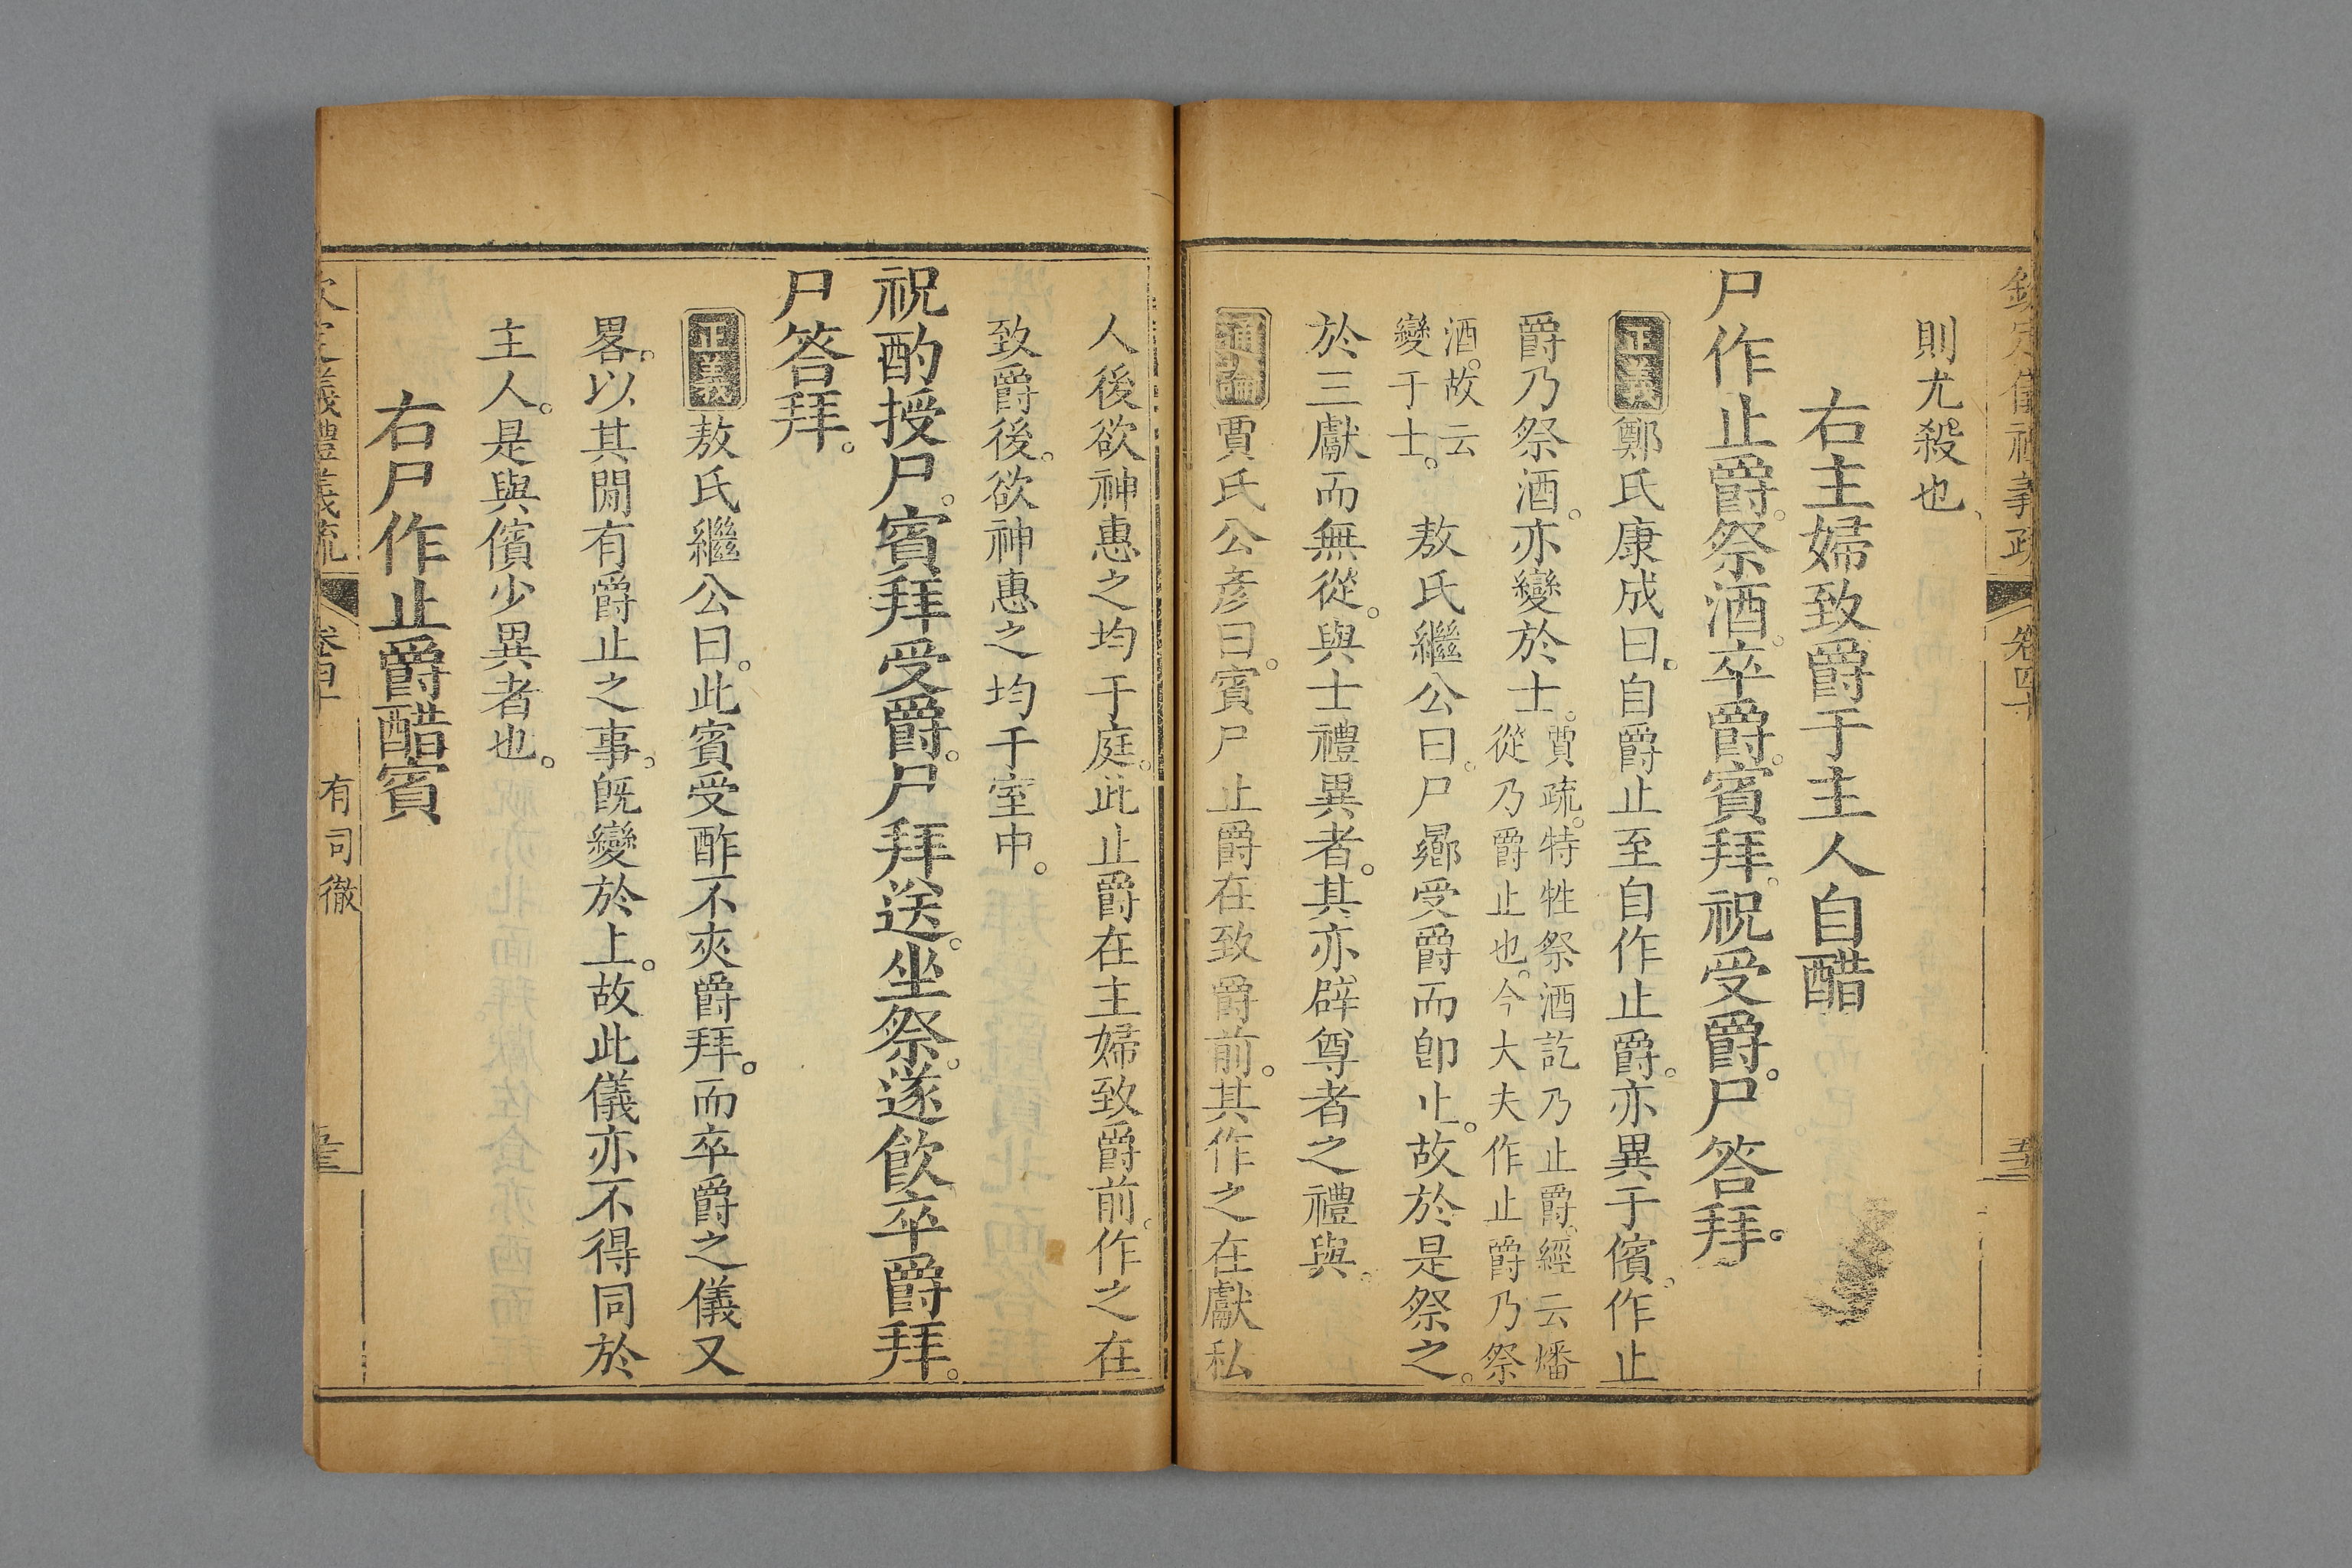 欽定儀禮義疏 卷四十
則尤殺也
右主婦致爵于主人自醋
尸作止爵。祭酒。卒爵。賓拜。祝受爵。尸答拜。
正義 鄭氏康成曰。自爵止至自作止爵。亦異于儐。作止
爵乃祭酒。亦變於士。賈疏。特牲祭酒訖乃止爵。經云燔
從乃爵止也。今大夫作止爵乃祭
酒。故云
變于士。 敖氏繼公曰。尸曏受爵而卽止。故於是祭之。
於三獻而無從。與士禮異者。其亦辟尊者之禮與。
通論 賈氏公彥曰。賓尸止爵在致爵前。其作之在獻私
人後欲神惠之均于庭。此止爵在主婦致爵前。作之在
致爵後。欲神惠之均于室中。
祝酌授尸。賓拜受爵。尸拜送。坐祭。遂飲卒爵拜。
尸答拜。
正義 敖氏繼公曰。此賓受酢不夾爵拜。而卒爵之儀又
畧。以其閒有爵止之事。旣變於上。故此儀亦不得同於
主人。是與儐少異者也。
右尸作止爵醋賓
欽定儀禮義疏 卷四十 有司徹